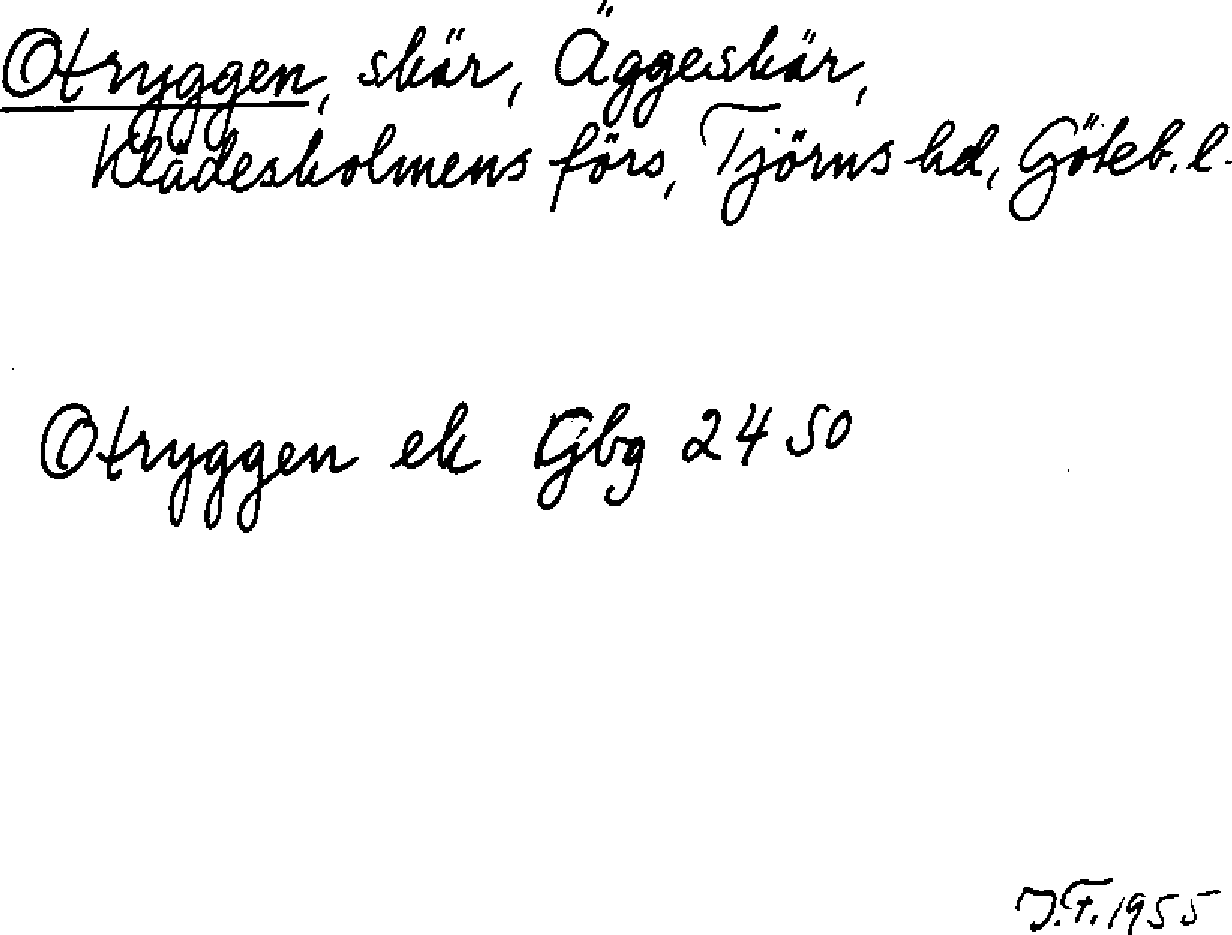 Otryggen, skär, Äggeskär,
Klädesholmens förs, Tjörns hd, Göteb. l.
Otryggen ek Gbg 2450
J.F. 1955